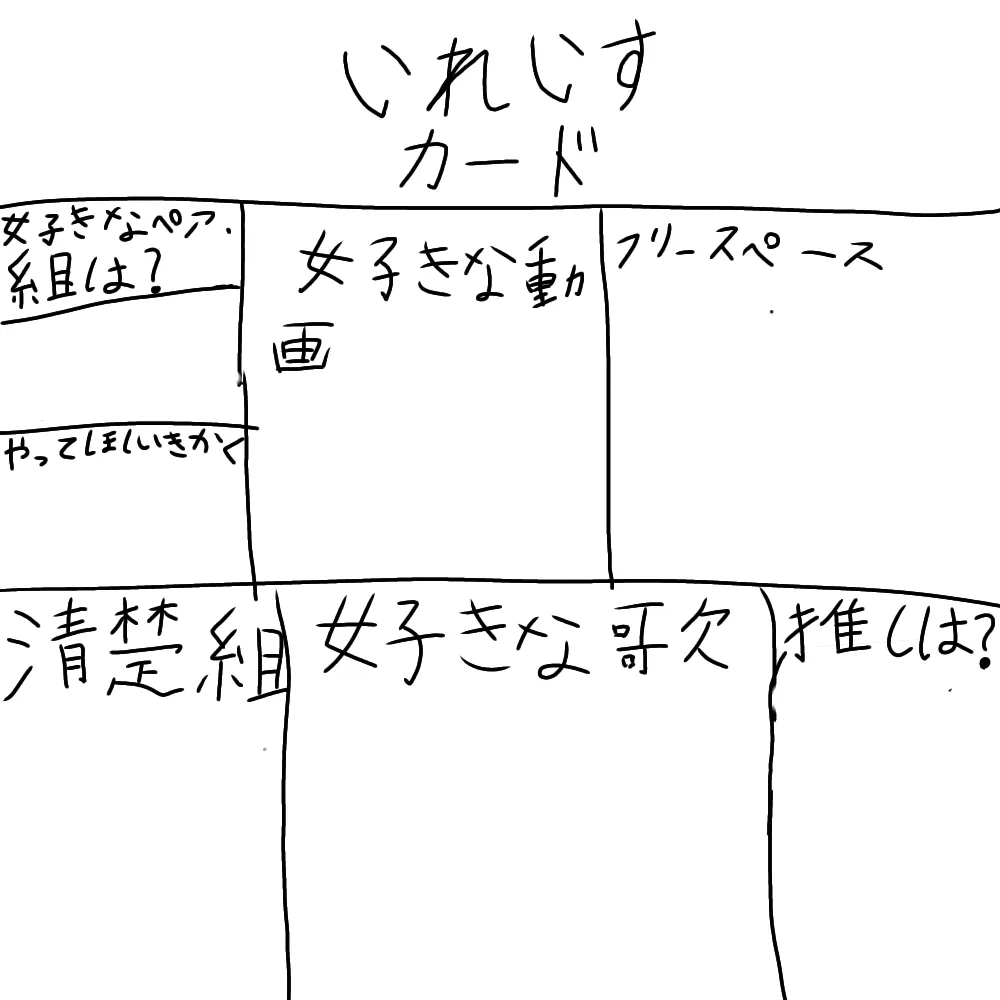 いれいす
カード
好きなペア・
組は?
やってほしいきかく
好きな動
画
フリースペース
清楚組
好きな歌
推しは?